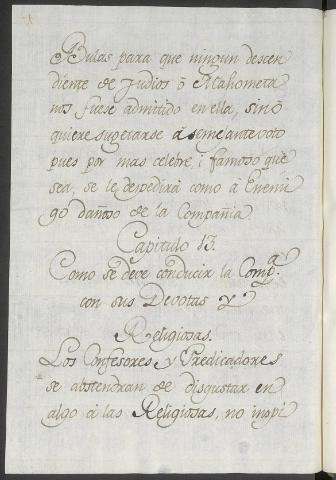 Bulas para que ningun descen
diente de Judios ò Mahometa
nos fuese admitido en ella, sinò
quiere sugetarse à semejante voto
pues por mas celebre, i famoso que
sea, se le despedirà como à Enemi
go dañoso de la Compañia.
Capitulo 13.
Como se deve conducir la Comp.ª
con sus Devotas y
Religiosas.
Los Confesores y Predicadores
se abstendran de disgustar en
algo à las Religiosas, no impi